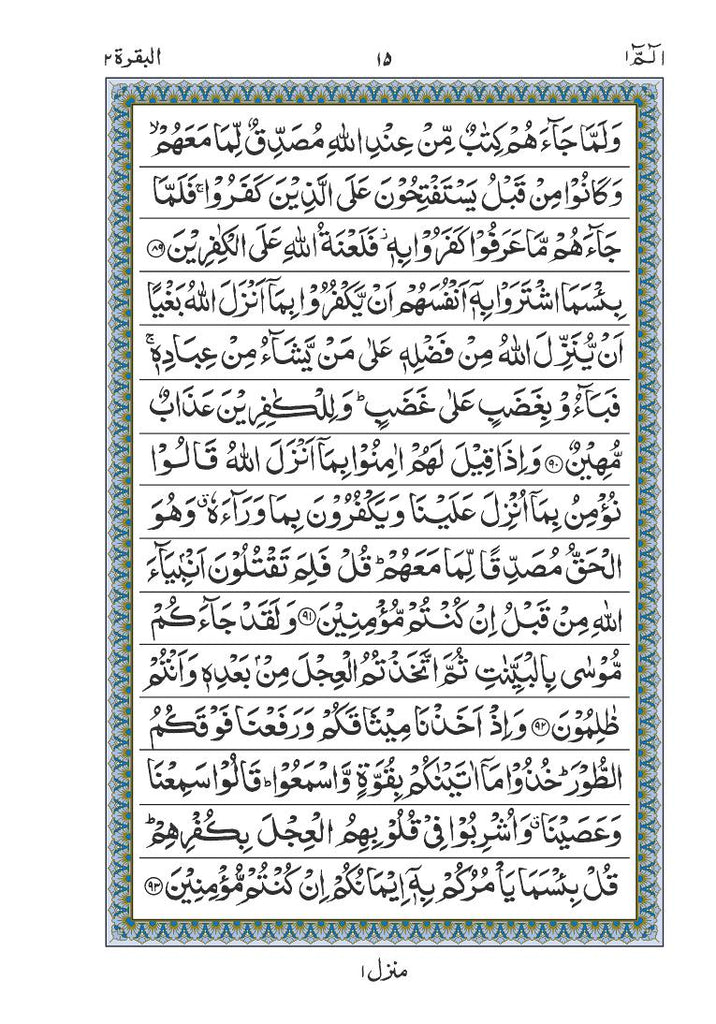 الٓمّٓ ١
١٥
البقرة ٢
وَلَمَّا جَآءَهُمْ كِتٰبٌ مِّنْ عِنْدِ اللّٰهِ مُصَدِّقٌ لِّمَا مَعَهُمْ ۙ
وَكَانُوْا مِنْ قَبْلُ يَسْتَفْتِحُوْنَ عَلَى الَّذِيْنَ كَفَرُوْا ۚ فَلَمَّا
جَآءَهُمْ مَّا عَرَفُوْا كَفَرُوْا بِهٖ ۫ فَلَعْنَةُ اللّٰهِ عَلَى الْكٰفِرِيْنَ ﴿۸۹﴾
بِئْسَمَا اشْتَرَوْا بِهٖۤ اَنْفُسَهُمْ اَنْ يَّكْفُرُوْا بِمَاۤ اَنْزَلَ اللّٰهُ بَغْيًا
اَنْ يُّنَزِّلَ اللّٰهُ مِنْ فَضْلِهٖ عَلٰى مَنْ يَّشَآءُ مِنْ عِبَادِهٖ ۚ
فَبَآءُوْ بِغَضَبٍ عَلٰى غَضَبٍ ؕ وَلِلْكٰفِرِيْنَ عَذَابٌ
مُّهِيْنٌ ﴿۹۰﴾ وَاِذَا قِيْلَ لَهُمْ اٰمِنُوْا بِمَاۤ اَنْزَلَ اللّٰهُ قَالُوْا
نُؤْمِنُ بِمَاۤ اُنْزِلَ عَلَيْنَا وَيَكْفُرُوْنَ بِمَا وَرَآءَهٗ ۗ وَهُوَ
الْحَقُّ مُصَدِّقًا لِّمَا مَعَهُمْ ؕ قُلْ فَلِمَ تَقْتُلُوْنَ اَنْۢبِيَآءَ
اللّٰهِ مِنْ قَبْلُ اِنْ كُنْتُمْ مُّؤْمِنِيْنَ ﴿۹۱﴾ وَلَقَدْ جَآءَكُمْ
مُّوْسٰى بِالْبَيِّنٰتِ ثُمَّ اتَّخَذْتُمُ الْعِجْلَ مِنْۢ بَعْدِهٖ وَاَنْتُمْ
ظٰلِمُوْنَ ﴿۹۲﴾ وَاِذْ اَخَذْنَا مِيْثَاقَكُمْ وَرَفَعْنَا فَوْقَكُمُ
الطُّوْرَ ؕ خُذُوْا مَاۤ اٰتَيْنٰكُمْ بِقُوَّةٍ وَّاسْمَعُوْا ؕ قَالُوْا سَمِعْنَا
وَعَصَيْنَا ۗ وَاُشْرِبُوْا فِيْ قُلُوْبِهِمُ الْعِجْلَ بِكُفْرِهِمْ ؕ
قُلْ بِئْسَمَا يَاْمُرُكُمْ بِهٖۤ اِيْمَانُكُمْ اِنْ كُنْتُمْ مُّؤْمِنِيْنَ ﴿۹۳﴾
منزل ١